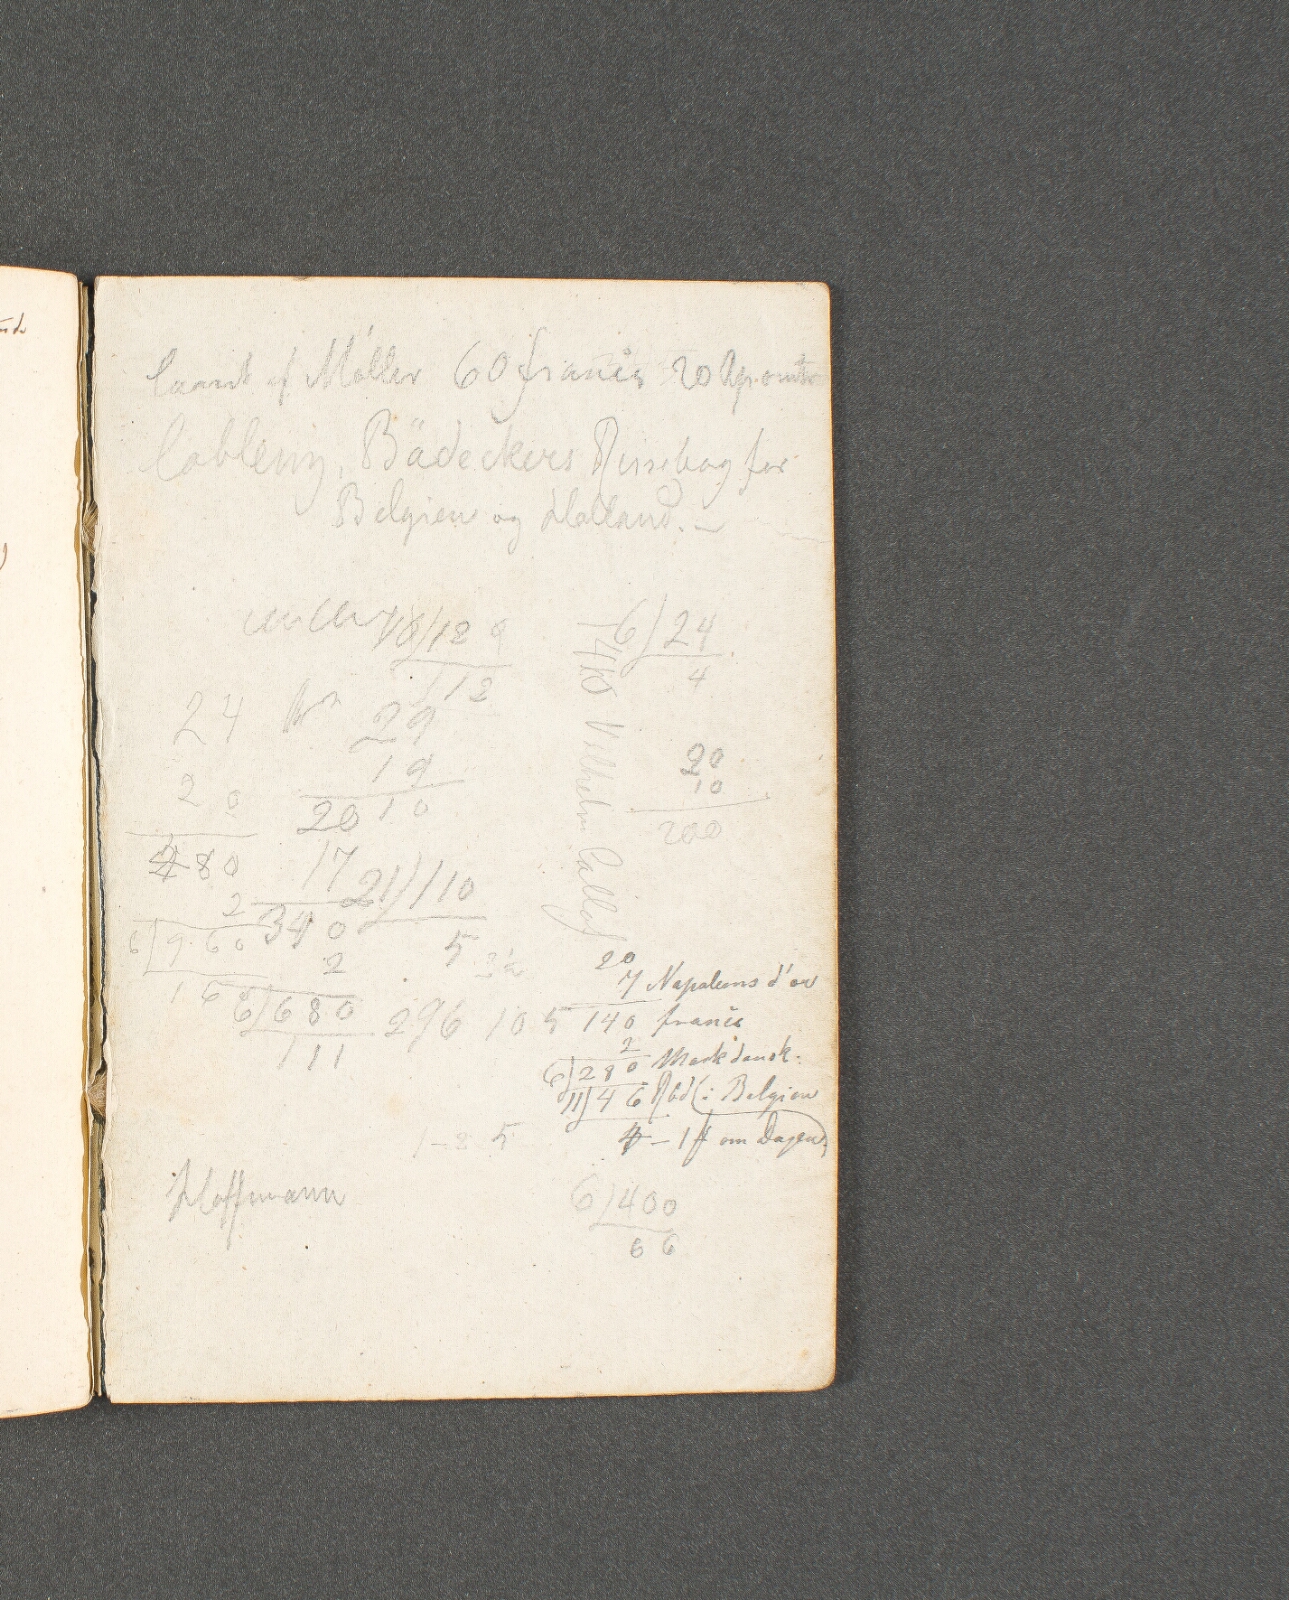 laant af Møller 60 francs 20
Coblenz, Bädeckers Reisebog for
Belgien og Holland. —
18/129
112
6/24
4
24
20
480
2
6/960
16
29
19
2010
17
340
2
6/680
111
21/110
5
296 10 5
Vilhelm
20
10
200
20
7 Napoleons d'or
140 francs
2 Mark dansk.
6/280
11/46 Rbd (i Belgien
4 – 1 om Dagen)
1–2 5
Hoffmann
6/400
66